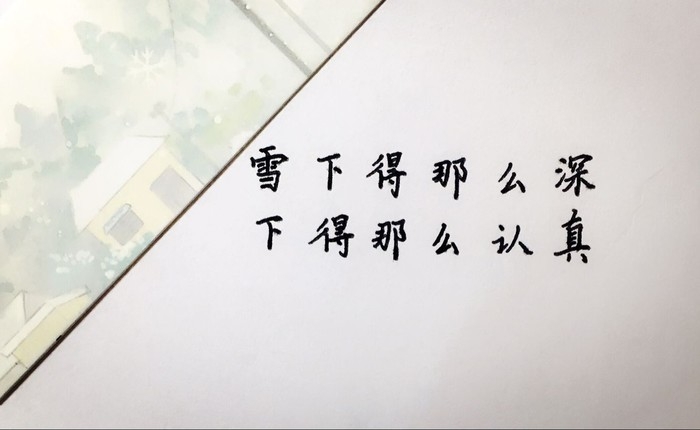 雪下得那么深
下得那么认真